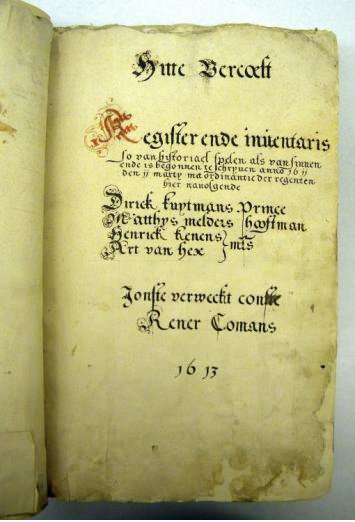 Hitte Vercoelt
Register ende inuentaris
so van hystoriael spelen als van sinnen
ende is begonnen te schryuen anno 16 11
den 11 marty na ordinantie der regenten
hier nauolgende
Dirick kuytmans Prince
Matthys melders hooftman
Henrick kenens
Art van hex
Jonste verweckt conste
Rener Comans
1613